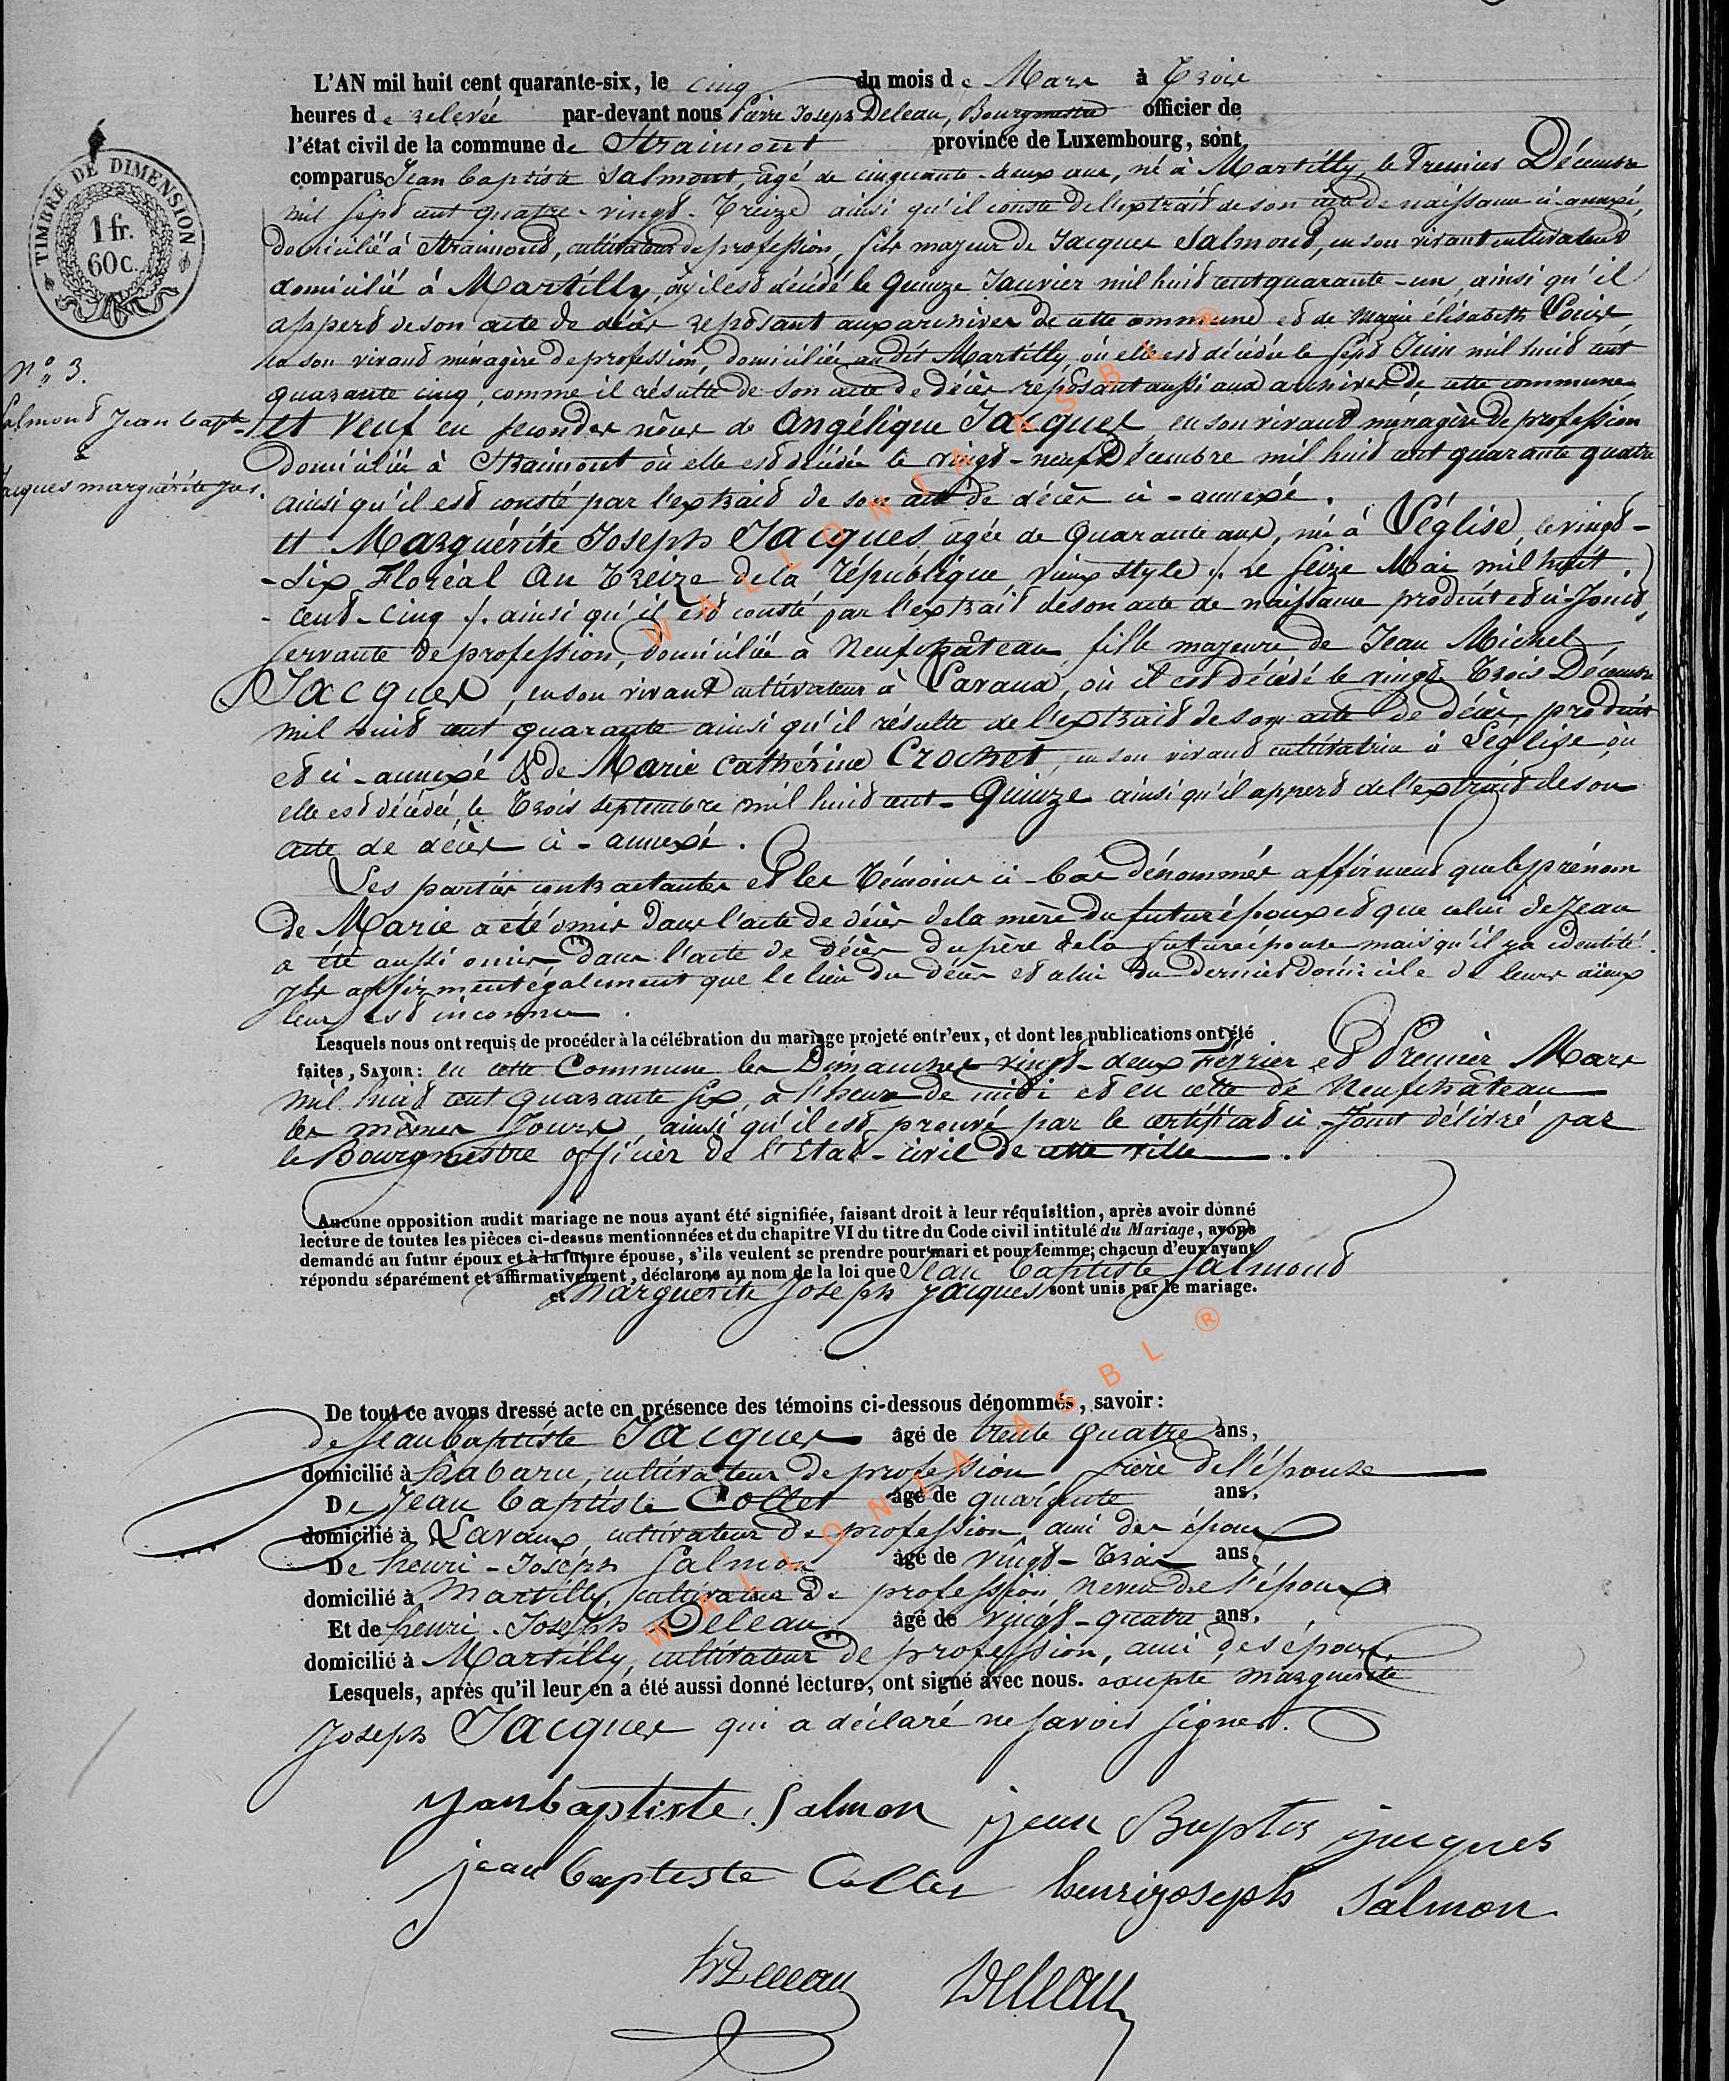 L'AN mil huit cent quarante-six, le cinq du mois de Mars à Trois
heures de relevée par-devant nous Pierre Joseph Deleau, Bourgmestre officier de
l'état civil de la commune de Straimont province de Luxembourg, sont
comparus Jean baptiste Salmont, âgé de cinquante-deux ans, né à Martilly, le Premier Décembre
mil sept cent quatre-vingt-Treize ainsi qu'il conste de l'extrait de son acte de naissance ci-annexé,
domicilié à Straimont, cultivateur de profession, fils majeur de Jacques Salmond, en son vivant cultivateur
domicilié à Martilly, où il est décédé le Quinze Janvier mil huit cent quarante-un, ainsi qu'il
appert de son acte de décès reposant aux archives de cette commune et de Marie élisabeth Louis,
en son vivant ménagère de profession, domiciliée audit Martilly, où elle est décédée le sept Juin mil huit cent
quarante cinq, comme il résulte de son acte de décès reposant aussi aux archives de cette commune
et Veuf en secondes nôces de Angélique Jacques en son vivant ménagère de profession
domiciliée à Straimont où elle est décédée le vingt-neuf Décembre mil huit cent quarante quatre
ainsi qu'il est consté par l'extrait de son acte de décès ci-annexé.
N° 3.
Salmond Jean bapte
à
Jacques marguérite Jos.
et Marguérite Joseph Jacques âgée de Quarante ans, née à Léglise, le vingt-
-six Floréal An Treize de la République, vieux style /. Le seize Mai mil huit
- cent-cinq /. ainsi qu'il est consté par l'extrait de son acte de naissance produit et ci-Joint,
servante de profession, domiciliée à Neufchâteau fille majeure de Jean Michel
Jacques, en son vivant cultivateur à Lavaux, où il est décédé le vingt Trois Décembre
mil huit cent quarante ainsi qu'il résulte de l'extrait de son acte de décès, produit
et ci-annexé & de Marie Cathérine Crochet, en son vivant cultivatrice à Léglise où
elle est décédée, le Trois septembre mil huit cent-Quinze ainsi qu'il appert de l'extrait de son
acte de décès ci-annexé.
Les parties contractantes et les Témoins ci-bas dénommés affirment que le prénom
de Marie a été omis dans l'acte de décès de la mère du futur époux et que celui de Jean
a été aussi omis dans l'acte de décès du père de la future épouse mais qu'il y a identité.
Ils affirment également que le lieu du décès et celui du dernier domicile de leurs aïeux
leur est inconnu.
Lesquels nous ont requis de procéder à la célébration du mariage projeté entr'eux, et dont les publications ont été
faites, SAVOIR: en cette Commune les Dimanches vingt-deux Février et Premier Mars
mil huit cent quarante six, à l'heure de midi et en celle de Neufchâteau
les mêmes Jours ainsi qu'il est prouvé par le certificat ci-Joint délivré par
le Bourgmestre officier de l'Etat-civil de cette ville.
Aucune opposition audit mariage ne nous ayant été signifiée, faisant droit à leur réquisition, après avoir donné
lecture de toutes les pièces ci-dessus mentionnées et du chapitre VI du titre du Code civil intitulé du Mariage, avons
demandé au futur époux et à la future épouse, s'ils veulent se prendre pour mari et pour femme; chacun d'eux ayant
répondu séparément et affirmativement, déclarons au nom de la loi que Jean baptiste Salmond
et Marguérite Joseph Jacques sont unis par le mariage.
De tout ce avons dressé acte en présence des témoins ci-dessous dénommés, savoir:
de Jean baptiste Jacques âgé de trente quatre ans,
domicilié à habaru, cultivateur de profession frère de l'épouse
De Jean baptiste Collet âgé de quarante ans,
domicilié à Lavaux, cultivateur de profession, ami des époux
De henri-Joseph Salmon âgé de vingt-trois ans,
domicilié à Martilly, cultivateur de profession neveu de l'époux
Et de henri-Joseph Deleau âgé de vingt-quatre ans,
domicilié à Martilly, cultivateur de profession, ami des époux.
Lesquels, après qu'il leur en a été aussi donné lecture, ont signé avec nous. excepté marguerite
Joseph Jacques qui a déclaré ne savoir signer.
Jean baptiste Salmon jean Baptis jacques
jean baptiste Collet henri joseph Salmon
Deleau
TIMBRE DE DIMENSION
1 fr.
60 c.
WALLONIA ASBL ®
WALLONIA ASBL ®